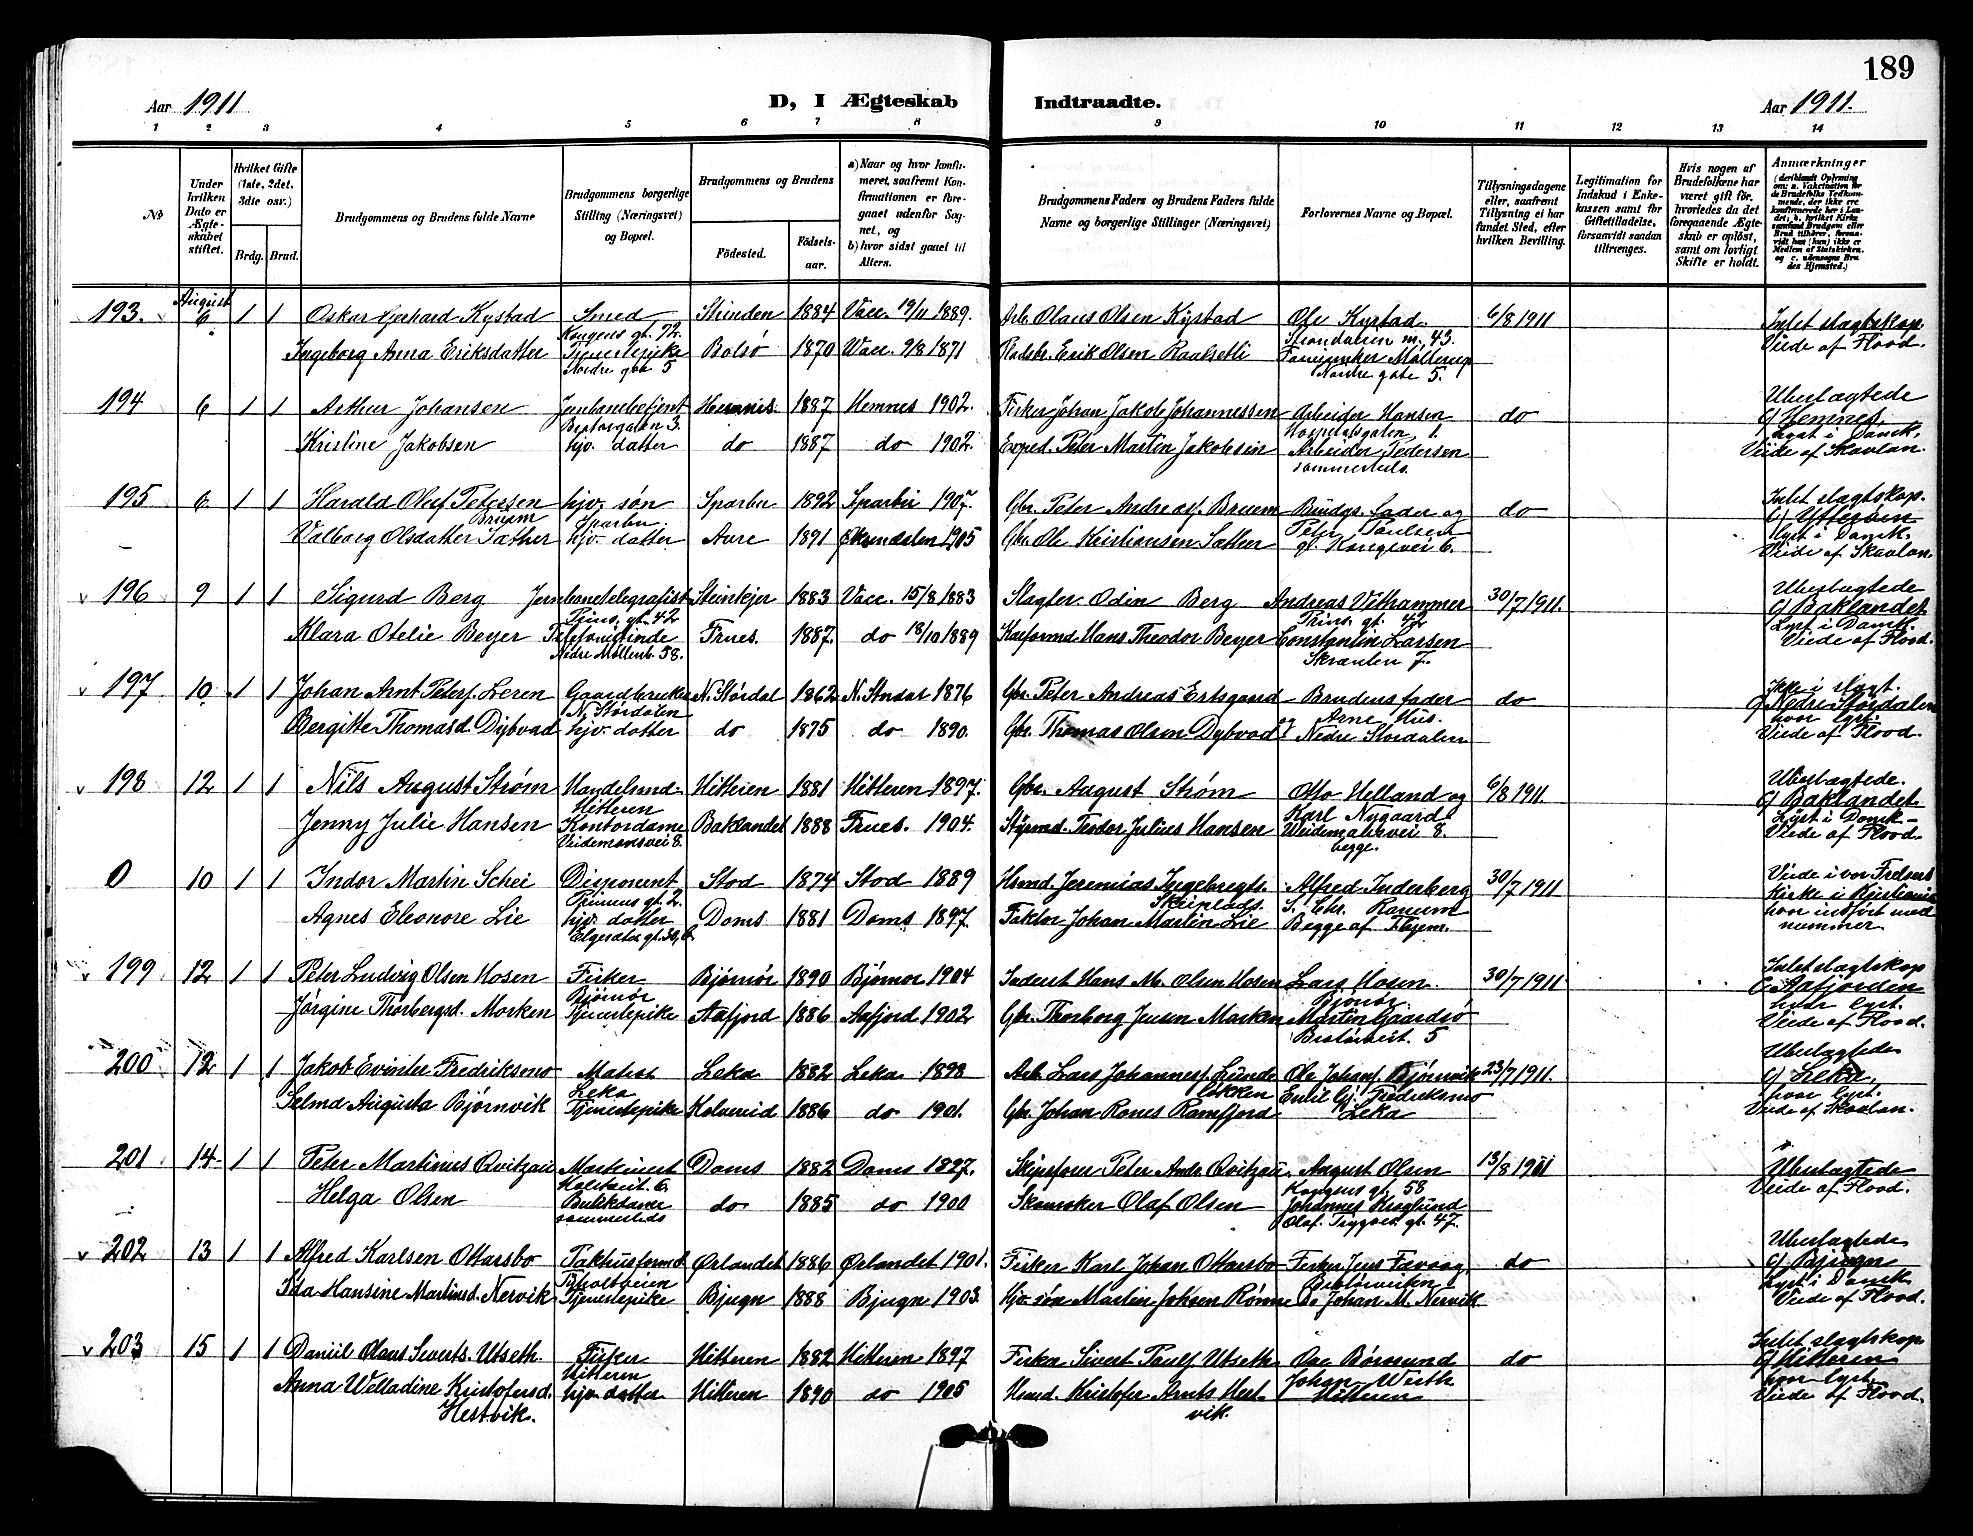 189
Aar 1911 D, I Ægteskab Indtraadte. Aar 1911.
1 2 3 4 5 6 7 8 9 10 11 12 13 14
No
Under hvilken Dato er Ægteskabet stiftet.
Hvilket Gifte (1ste, 2det, 3die osv.)
Brdg. Brud.
Brudgommens og Brudens fulde Navne
Brudgommens borgerlige Stilling (Næringsvei) og Bopæl.
Brudgommens og Brudens
Fødested. Fødselsaar.
a) Naar og hvor konfirmeret, saafremt Konfirmationen er foregaaet udenfor Sognet, og
b) hvor sidst gaaet til Alters.
Brudgommens Faders og Brudens Faders fulde Navne og borgerlige Stillinger (Næringsvei)
Forlovernes Navne og Bopæl.
Tillysningsdagene eller, saafremt Tillysning ei har fundet Sted, efter hvilken Bevilling.
Legitimation for Indskud i Enkekassen samt for Giftetilladelse, forsaavidt saadan tiltrænges.
Hvis nogen af Brudefolkene har været gift før, hvorledes da det foregaaende Ægteskab er opløst, samt om lovligt Skifte er holdt.
Anmærkninger
193. August 6 1 1 Oskar Gerhard Kystad Smed Strinden 1884 Vacc. 19/11 1889. Arb. Olaus Olsen Kystad Ole Kystad 6/8 1911 Intet slagtskap
Kongens gt. 72 43.
Ingeborg Anna Eriksdatter Tjenestepike Bolsø 1870 Vacc. 9/8 1871 Pladsbr. Erik Olsen Viede af Flood.
Nordre gate 5 Nordre gate 5.
194 6 1 1 Arthur Johansen Jernbanebetjent Hemnes 1887 Hemnes 1902. Fisker Johan Jakob Johannessen Arbeider Hansen do Ubeslægtede
Hospitalsgaten 1. Hemnes,
Kristine Jakobsen hjv. datter do 1887 do 1902. Exped. Peter Martin Jakobsen Arbeider Pedersen lyst i Domk.
sammesteds. Viede af Skavlan.
195 6 1 1 Harald Olef Petersen hjv. søn Sparbu 1892 Sparbu 1907. Gbr. Peter Andreas. Bruem Brudgs. fader og do Intet slagtskap.
Bruem Sparbu Peter Paulsen Ytterøen
Valborg Olsdatter Sæther hjv. datter Aure 1891 1905 Gbr. Ole Kristiansen Sæther gt. Kongevei 6. Lyst i Domk.
Viede af Skavlan.
v 196 9 1 1 Sigurd Berg Jernbanetelegrafist Steinkjer 1883 Vacc. 15/8 1883 Slagter Odin Berg Andreas Vithammer 30/7 1911. Ubeslægtede
Prins. gt. 42 Prins. gt. 42 Baklandet
Klara Otelie Beyer Telefonistinde Frues. 1887. do 18/10 1889 Hans Theodor Beyer Constantin Larsen Lyst i Domk.
Nedre Møllenb. 58. 7. Viede af Flood.
v 197 10 1 1 Johan Arnt Peters. Leren Gaardbruker N. Størdal 1862 N. Stordal 1876 Gbr. Peter Andreas Ertsgaard Brudens fader do Ikke i slagt.
N. Størdalen og Arne Hus. Nedre Stordalen
Bergitte Thomasd. Dybvad hjv. datter do 1875 do 1890. Gbr. Thomas Olsen Dybvad Nedre Stordalen hvor lyst.
Viede af Flood.
v 198 12 1 1 Nils August Strøm Handelsmd. Hitteren 1881 Hitteren 1897. Gbr. August Strøm Otto Helland og 6/8 1911. Ubeslægtede.
Hitteren Karl Nygaard Baklandet
Jenny Julie Hansen Kontordame Baklandet 1888 Frues. 1904. Styrmd. Teodor Julius Hansen Weidemansvei 8. Lyst i Domk
Veidemansvei 8. begge. Viede af Flood
0 10 1 1 Indor Martin Schei Disponent Stod 1874 Stod 1889 Hsmd. Jeremias Ingebregts. Alfred Inderberg 30/7 1911 Viede i vor Frelsers
Prinsens gt. 2. S. Chr. Ranum Kirke i Kristiania
Agnes Eleonore Lie hjv. datter Doms 1881 Doms 1897. Faktor Johan Martin Lie Begge af Thjem. hvor indført med
Elgesæter gt. 30, b. nummer.
v 199 12 1 1 Peter Ludvig Olsen Hosen Fisker Bjørnør 1890 Bjørnør 1904 Inderst Hans M. Olsen Hosen Lars Hosen 30/7 1911 Intet slagtskap
Bjørnør Bjønør. Aafjorden
Jørgine Thorbergsd. Morken Tjenestepike Aafjord 1886 Aafjord 1902 Gbr. Thorberg Jensen Morken Martin Gaardsø hvor lyst.
5 Viede af Flood.
200 12 1 1 Jakob Fredriksmo Matros Leka 1882 Leka 1898 Arb. Lars Johannes. Lunde Ole Johans. Bjørnvik 23/7 1911. Ubeslægtede
Leka løkken Emil Gj. Fredriksmo Leka,
Selma Augusta Bjørnvik Tjenestepike Kolvereid 1886 do 1901. Gbr. Johan Rones Ramfjord Leka hvor lyst.
Viede af Skavlan.
201 14 1 1 Peter Martinus Qvitzau Maskinist Doms 1882 Doms 1897. Skipsfører Peter Andr. Qvitzau August Olsen 13/8 1911 Ubeslægtede
6. Kongens gt. 58 Viede af Flood.
Helga Olsen Butikdame do 1885 do 1900 Skomaker Olaf Olsen Johannes
sammesteds Olaf. Trygves. gt. 47.
v 202 13 1 1 Alfred Karlsen Ottarsbo Pakhusformd Ørlandet 1886 Ørlandet 1901. Fisker Karl Johan Ottarsbo Fisker Jens do Ubeslægtede
Bjugn
Ida Hansine Martinsd. Nervik Tjenestepike Bjugn 1888 Bjugn 1903. Hjv. søn Martin Johsen Rønne do Johan M. Nervik Lyst i Domk
Viede af Flood.
v 203 15 1 1 Daniil Olaus Siverts. Utseth. Fisker Hitteren 1882 Hitteren 1897 Fisker Sivert Pauls Utseth Børøsund do Intet slagtskap
Hitteren Johan Hitteren
Anna Welladine Kristofersd. hjv. datter Hitteren 1890 do 1905 Hsmd. Kristofer Arnts Hest Hitteren hvor lyst
Hestvik. vik. Viede af Flood.